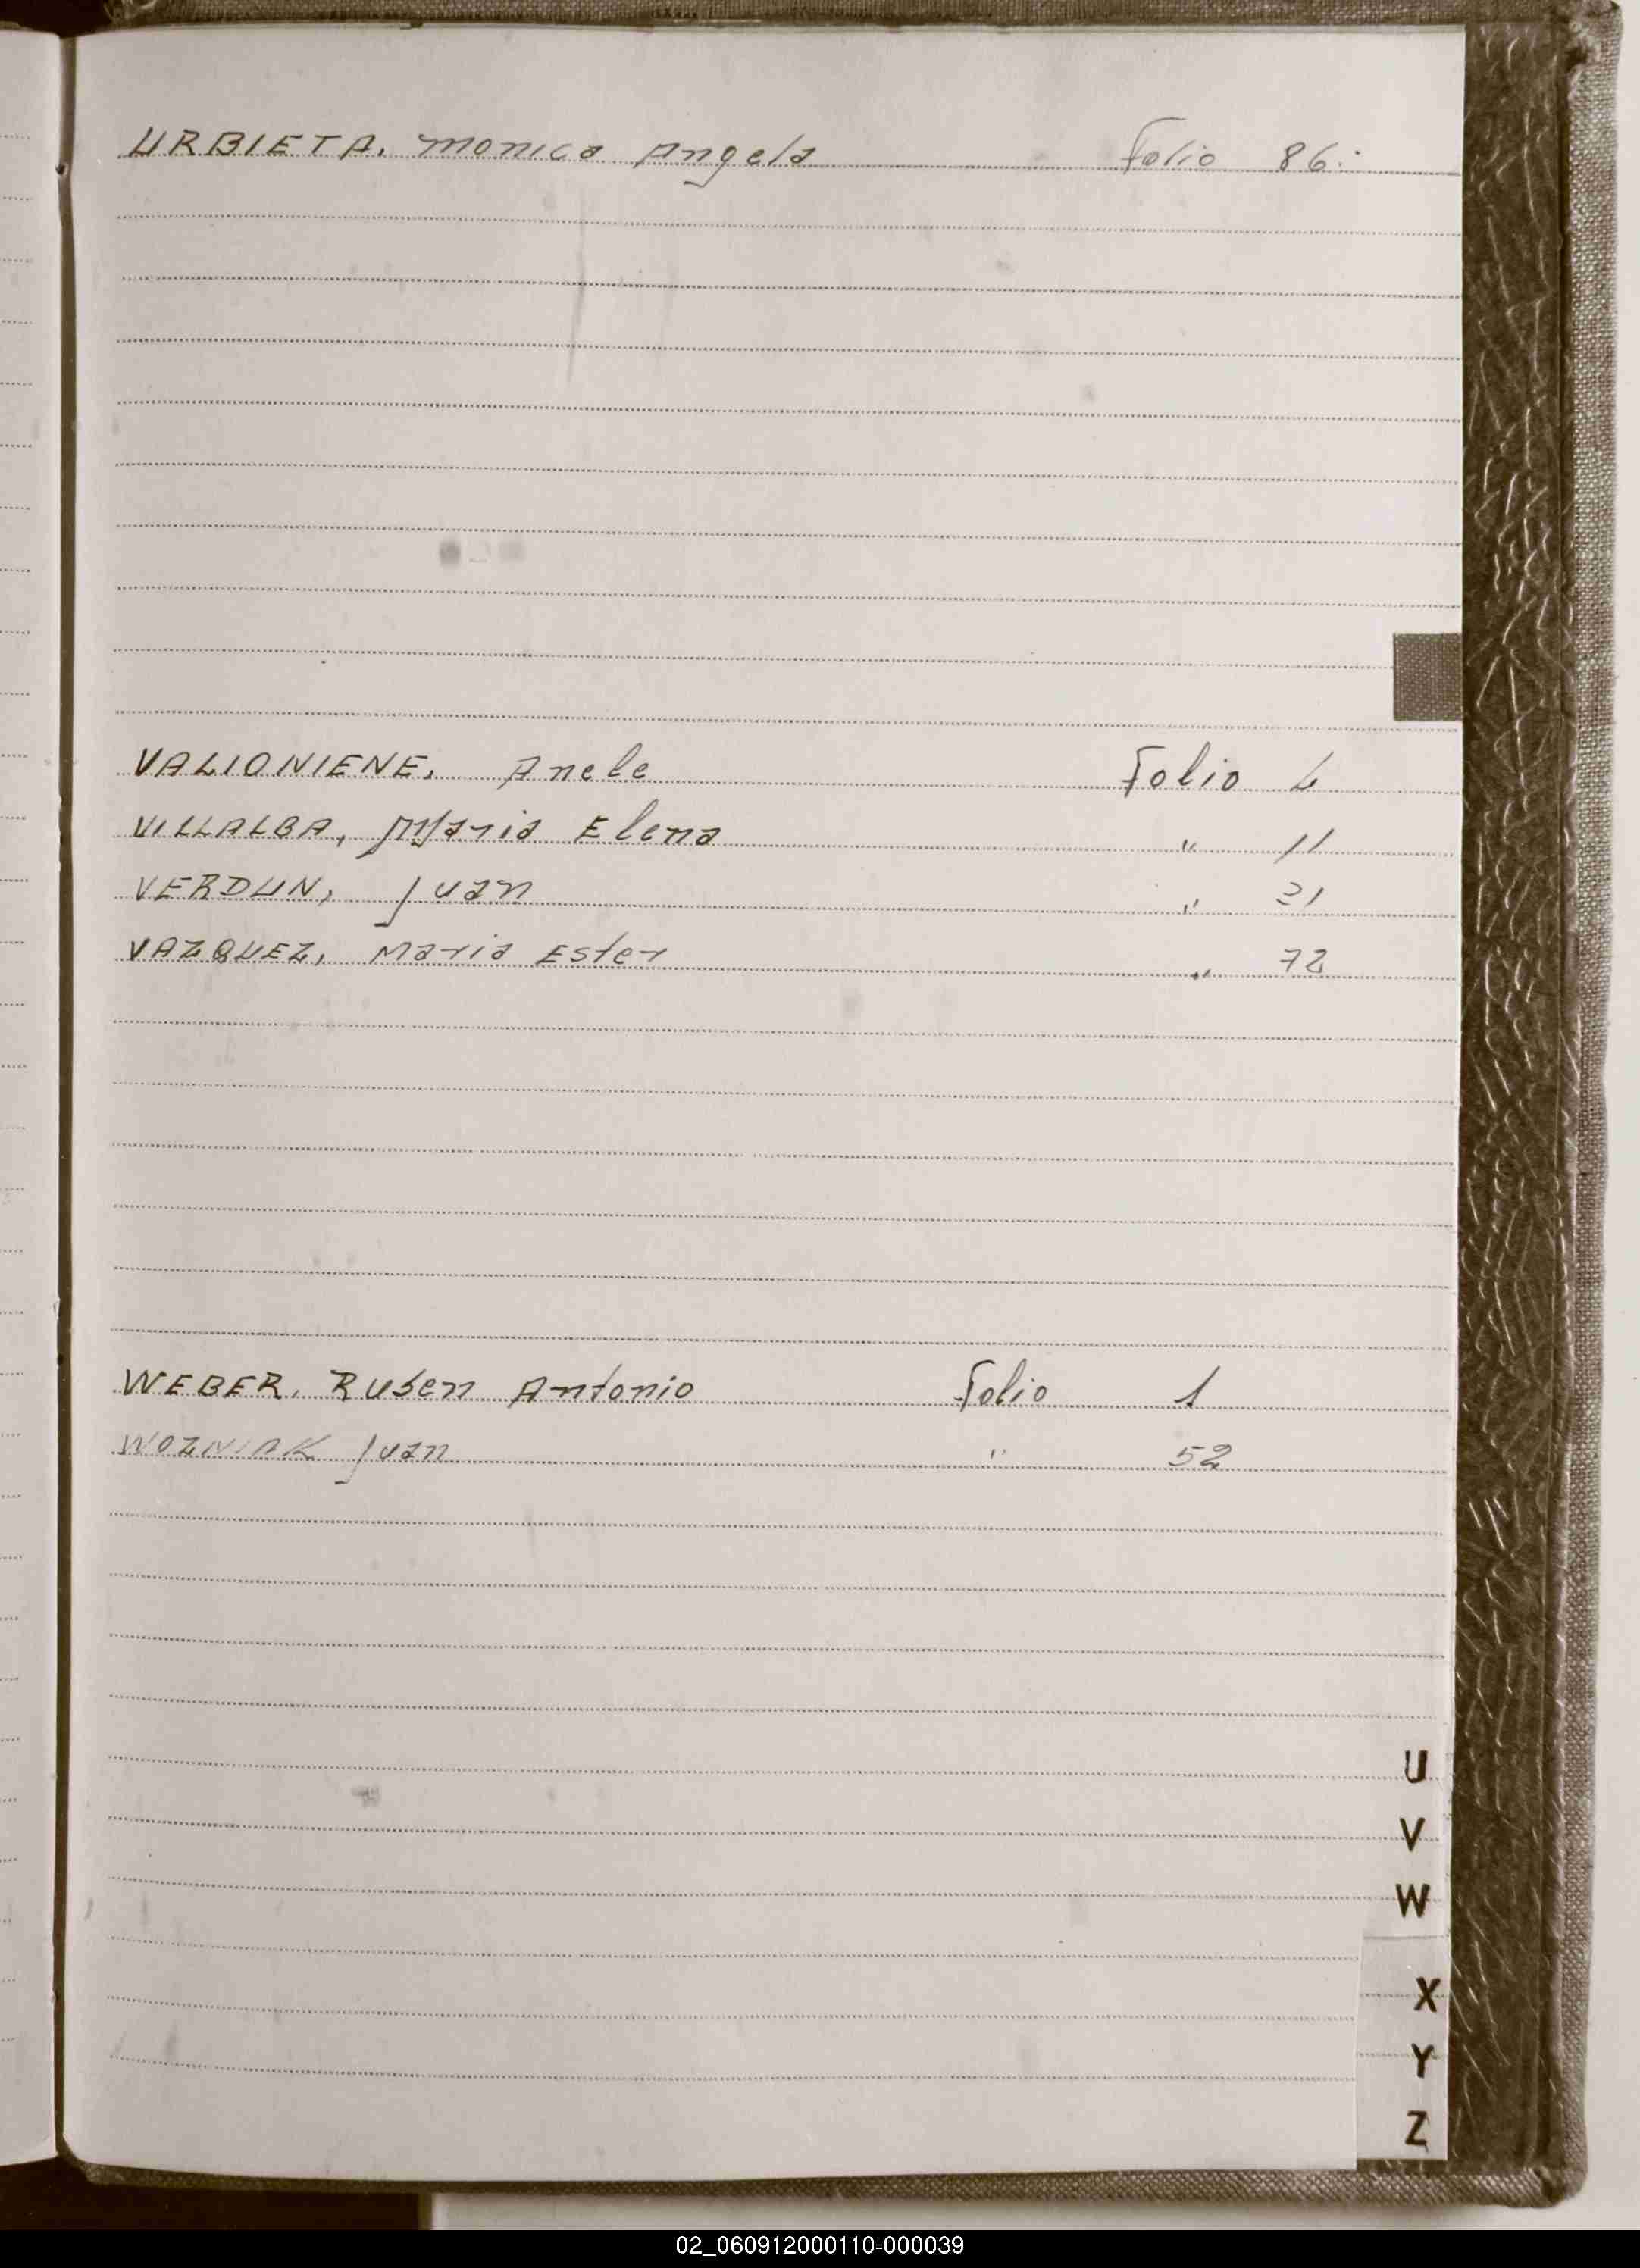 URBIETA. Monica Angela Folio 86.-
VALIONIENE. Anele Folio 4
VILLALBA, Maria Elena " 11
VERDUN, Juan " 31
VAZQUEZ, Maria Ester " 72
WEBER. Ruben Antonio Folio 1
WOZNIAK Juan " 52
U
V
W
X
Y
Z
02_060912000110-000039